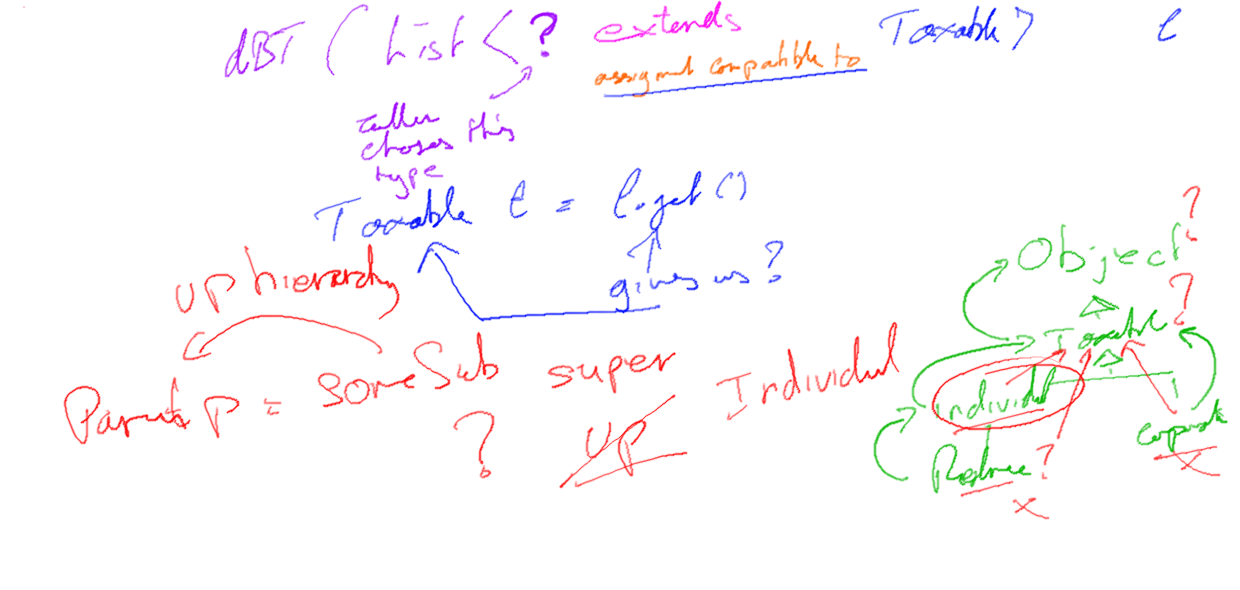 dBT ( List < ? extends Taxable > l
assignmt compatible to
caller
choses this
type
Taxable t = l.get ()
gives us ?
up hierarchy
Parent p = someSub super Individul
?
UP
?
Object
?
Taxable
individul
corporate
?